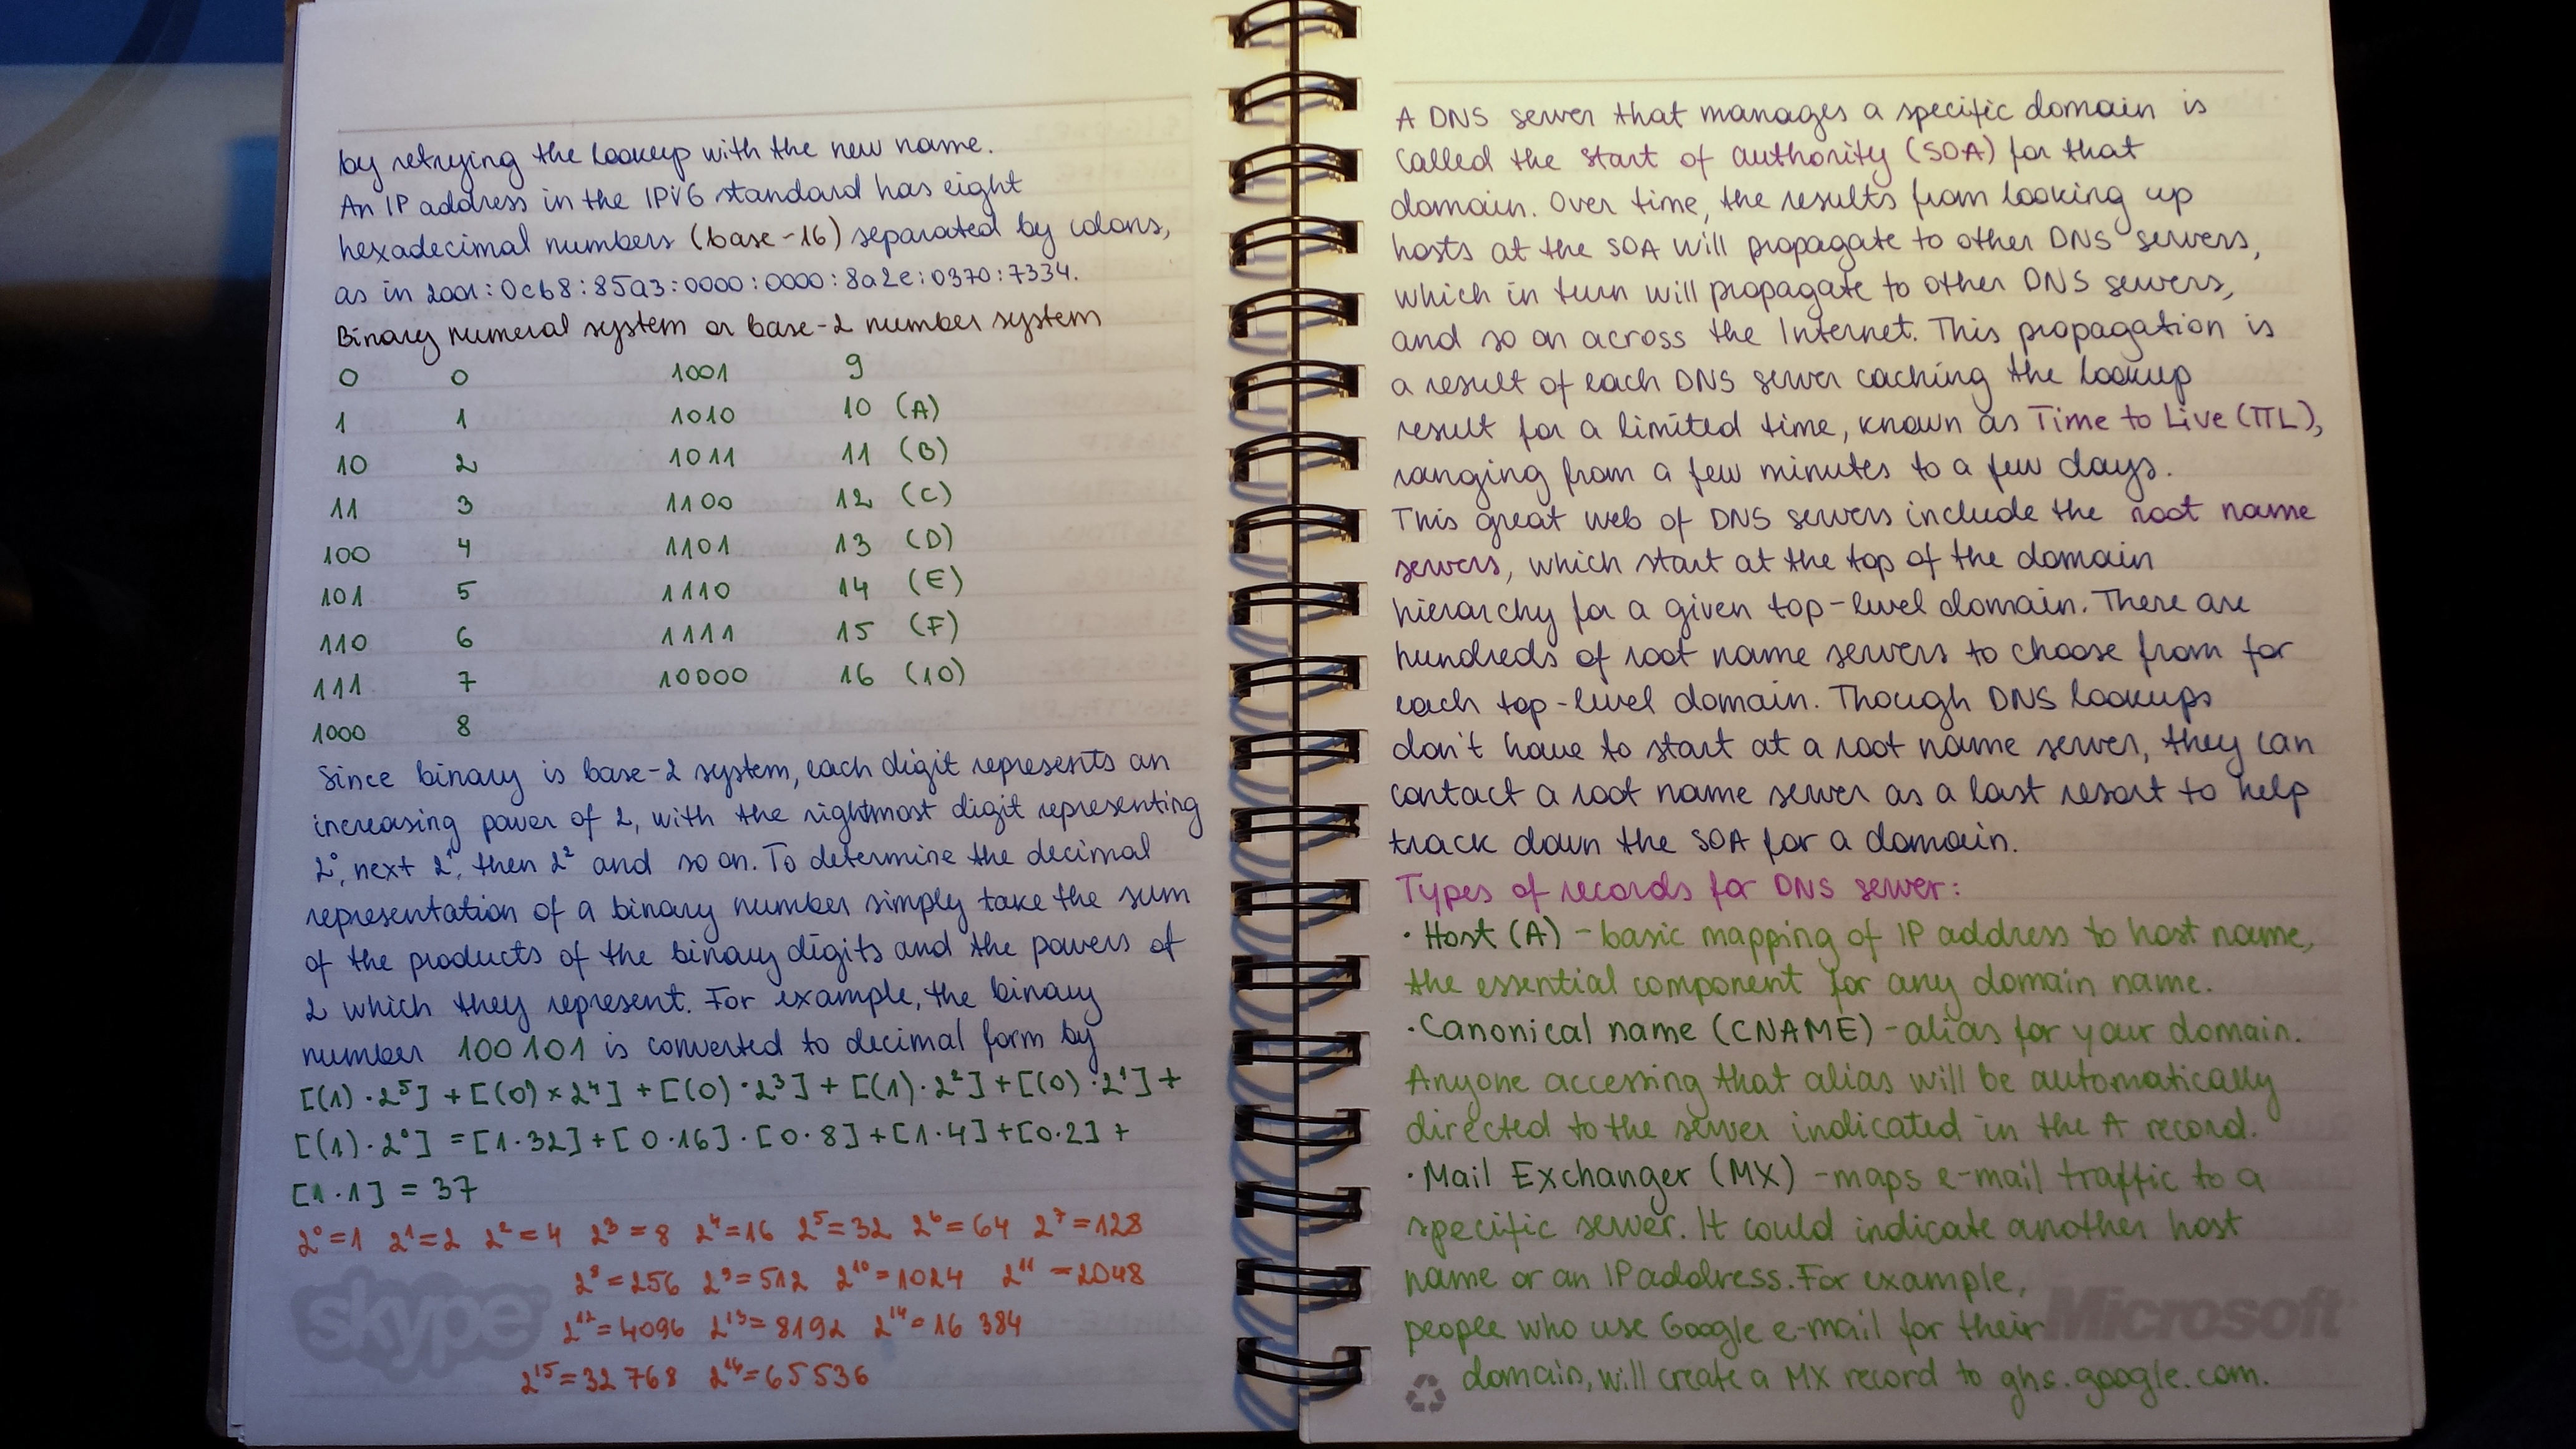 by retrying the lookup with the new name.
An IP address in the IPV6 standard has eight
hexadecimal numbers (base-16) separated by colons,
as in 2001:0cb8:85a3:0000:0000:8a2e:0370:7334.
Binary numeral system or base-2 number system
0 0 1001 9
1 1 1010 10 (A)
10 2 1011 11 (B)
11 3 1100 12 (C)
100 4 1101 13 (D)
101 5 1110 14 (E)
110 6 1111 15 (F)
111 7 10000 16 (10)
1000 8
Since binary is base-2 system, each digit represents an
increasing power of 2, with the rightmost digit representing
2⁰, next 2¹, then 2² and so on. To determine the decimal
representation of a binary number simply take the sum
of the products of the binary digits and the powers of
2 which they represent. For example, the binary
number 100101 is converted to decimal form by
[(1)·2⁵] + [(0)×2⁴] + [(0)·2³] + [(1)·2²] + [(0)·2¹] +
[(1)·2⁰] = [1·32] + [0·16]·[0·8] + [1·4] + [0·2] +
[1·1] = 37
2⁰=1 2¹=2 2²=4 2³=8 2⁴=16 2⁵=32 2⁶=64 2⁷=128
2⁸=256 2⁹=512 2¹⁰=1024 2¹¹=2048
2¹²=4096 2¹³=8192 2¹⁴=16 384
2¹⁵=32 768 2¹⁶=65536
skype
A DNS server that manages a specific domain is
called the start of authority (SOA) for that
domain. Over time, the results from looking up
hosts at the SOA will propagate to other DNS servers,
which in turn will propagate to other DNS servers,
and so on across the Internet. This propagation is
a result of each DNS server caching the lookup
result for a limited time, known as Time to Live (TTL),
ranging from a few minutes to a few days.
This great web of DNS servers include the root name
servers, which start at the top of the domain
hierarchy for a given top-level domain. There are
hundreds of root name servers to choose from for
each top-level domain. Though DNS lookups
don't have to start at a root name server, they can
contact a root name server as a last resort to help
track down the SOA for a domain.
Types of records for DNS server:
· Host (A) - basic mapping of IP address to host name,
the essential component for any domain name.
· Canonical name (CNAME) - alias for your domain.
Anyone accessing that alias will be automatically
directed to the server indicated in the A record.
· Mail Exchanger (MX) - maps e-mail traffic to a
specific server. It could indicate another host
name or an IP address. For example,
people who use Google e-mail for their
domain, will create a MX record to ghs.google.com.
Microsoft